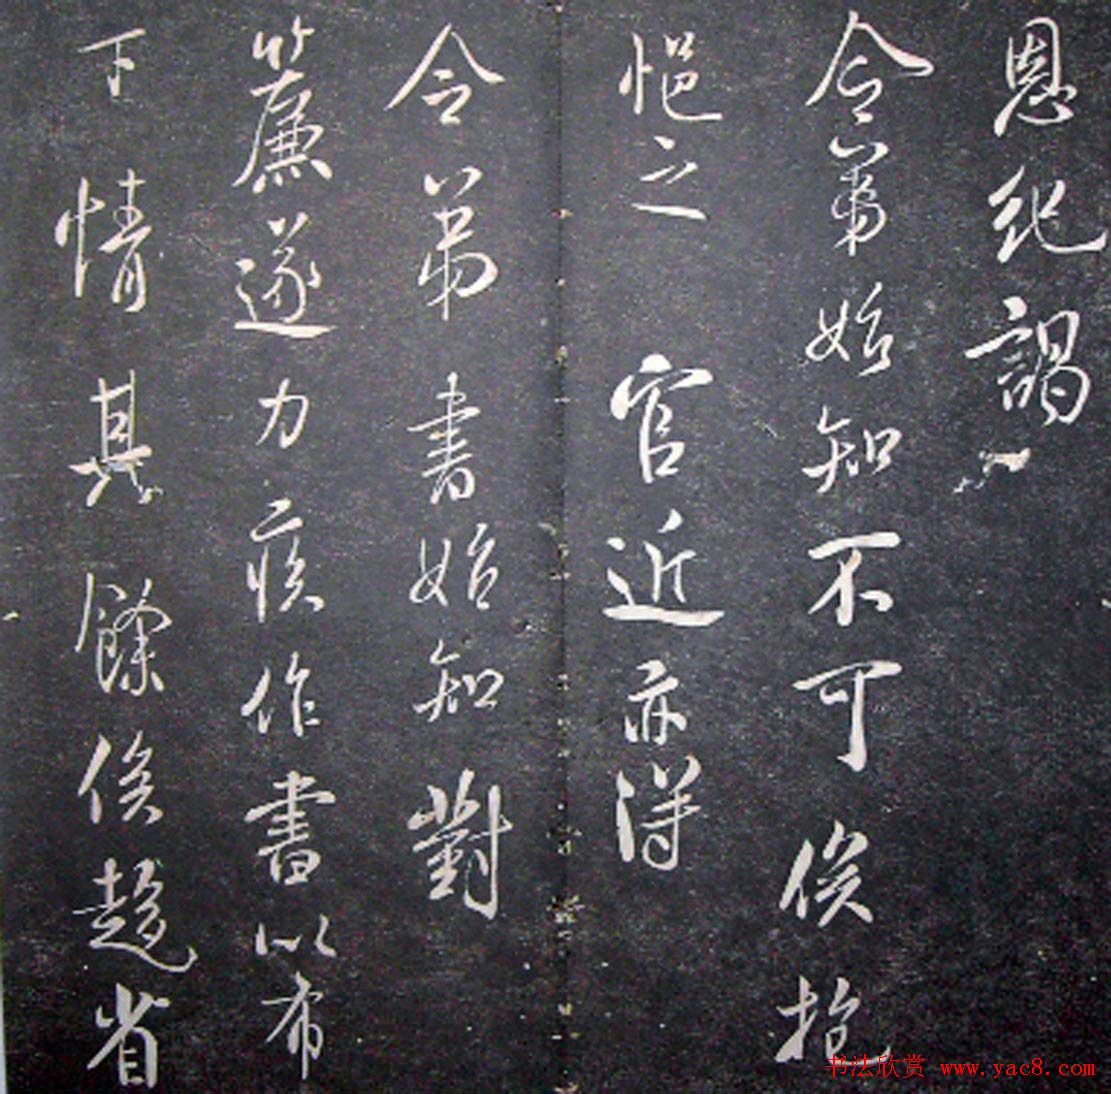 恩紀謁
令弟始知不可俟抱
悒之官近亦得
令弟書始知對
簾遂力疾作書以布
下情其餘俟趨省
书法欣赏 www.yac8.com